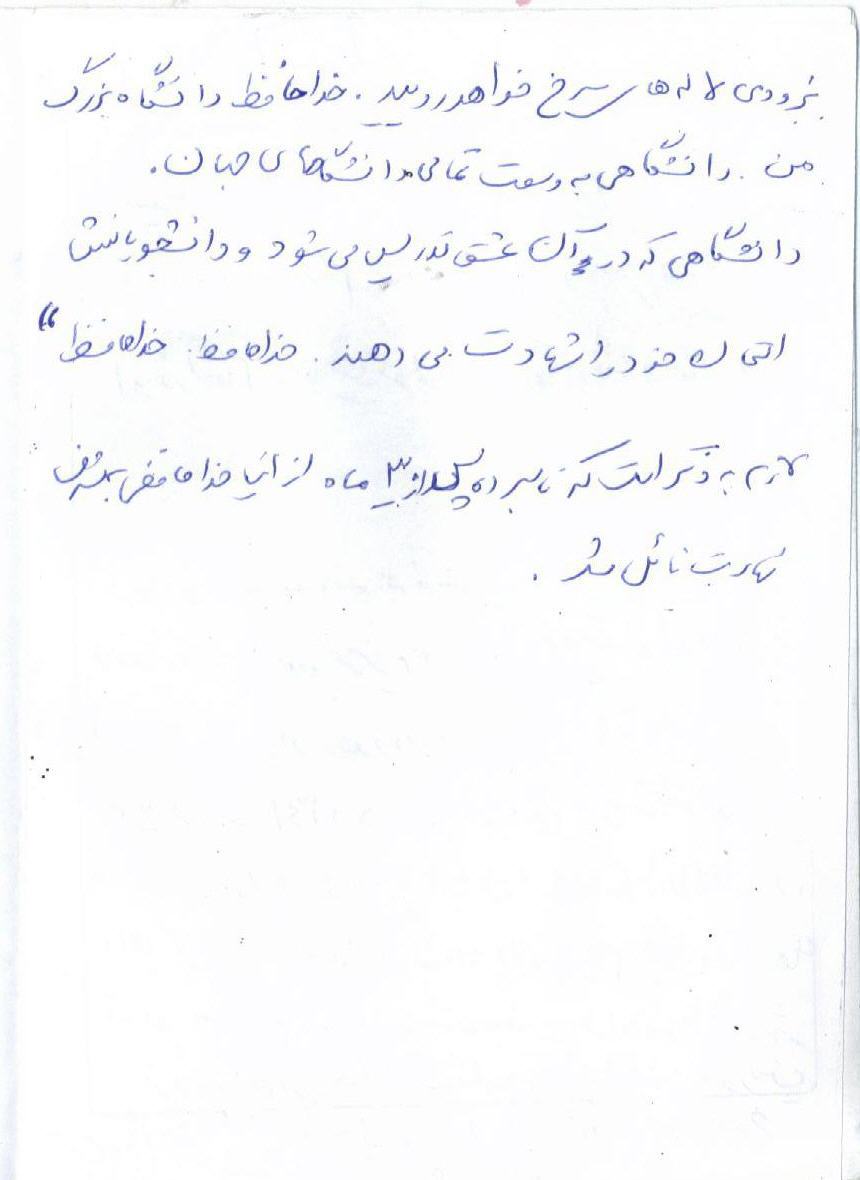 بزودی لاله ها سرخ خواهد روئید. خداحافظ دانشگاه بزرگ
من. دانشگاهی به وسعت تمامی دانشگاههای جهان.
دانشگاهی که در آن عشق تدریس می شود و دانشجویانش
امتحان خود را شهادت می دهند. خداحافظ. خداحافظ"
لازم به ذکر است که نامبرده پس از ۳ ماه از این خداحافظی به شرف
شهادت نائل شد.